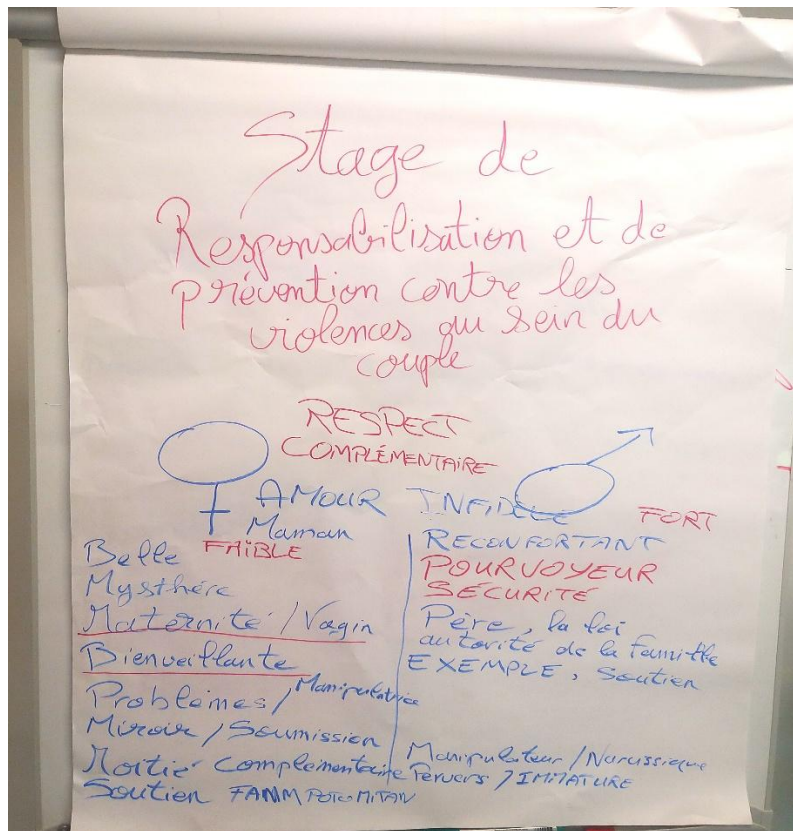 Stage de
Responsabilisation et de
prévention contre les
violences au sein du
couple
RESPECT
COMPLÉMENTAIRE
AMOUR
Maman
FAIBLE
Belle
Mysthère
Maternité / Vagin
Bienveillante
Problèmes / Manipulatrice
Miroir / Soumission
Moitié Complémentaire
Soutien FANM POTOMITAN
INFIDÈLE
FORT
RECONFORTANT
POURVOYEUR
SÉCURITÉ
Père, la loi
autorité de la famille
EXEMPLE, Soutien
Manipulateur / Narcissique
Pervers / IMMATURE